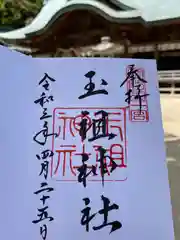 奉拝
玉祖神社
玉祖
神社
令和三年四月二十五日